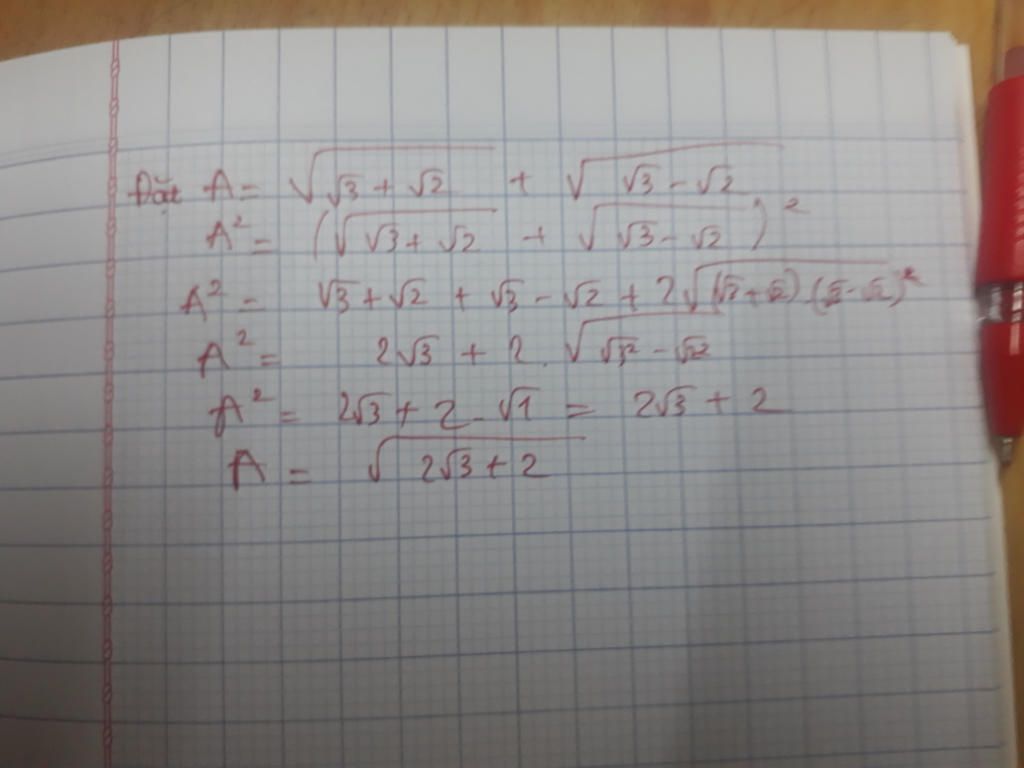 Đặt A = √(√3 + √2) + √(√3 - √2)
A² = (√(√3 + √2) + √(√3 - √2))²
A² = √3 + √2 + √3 - √2 + 2√((√3 + √2).(√3 - √2))²
A² = 2√3 + 2.√(√3² - √2²)
A² = 2√3 + 2.√1 = 2√3 + 2
A = √(2√3 + 2)